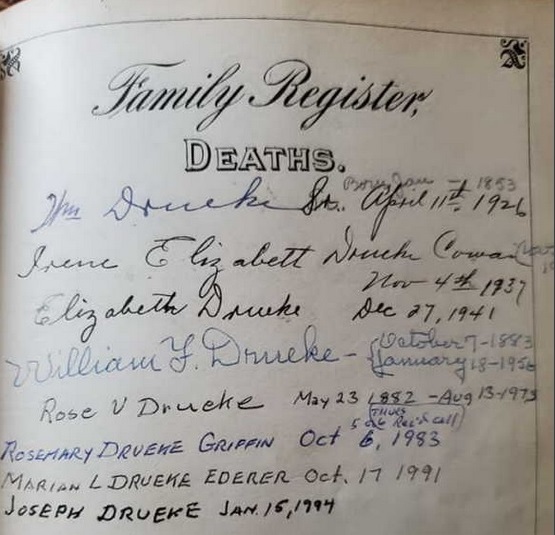 Family Register,
DEATHS.
Born Jan - 1853
Wm Drueke Sr. April 11th. 1926
Irene Elizabett Drueke Cowan
Nov 4th 1937
Elizabeth Drueke Dec 27, 1941
William F. Drueke - October 7-1883
January 18-1956
Rose V Drueke May 23 1882 - Aug 13-1973
THURS
ROSEMARY DRUEKE GRIFFIN Oct 6, 1983
MARIAN L DRUEKE EDERER Oct. 17 1991
JOSEPH DRUEKE JAN. 15, 1994